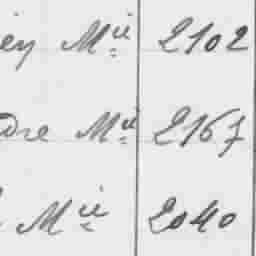 ien Mie 2102
dre Mie 2167
Mie 2040